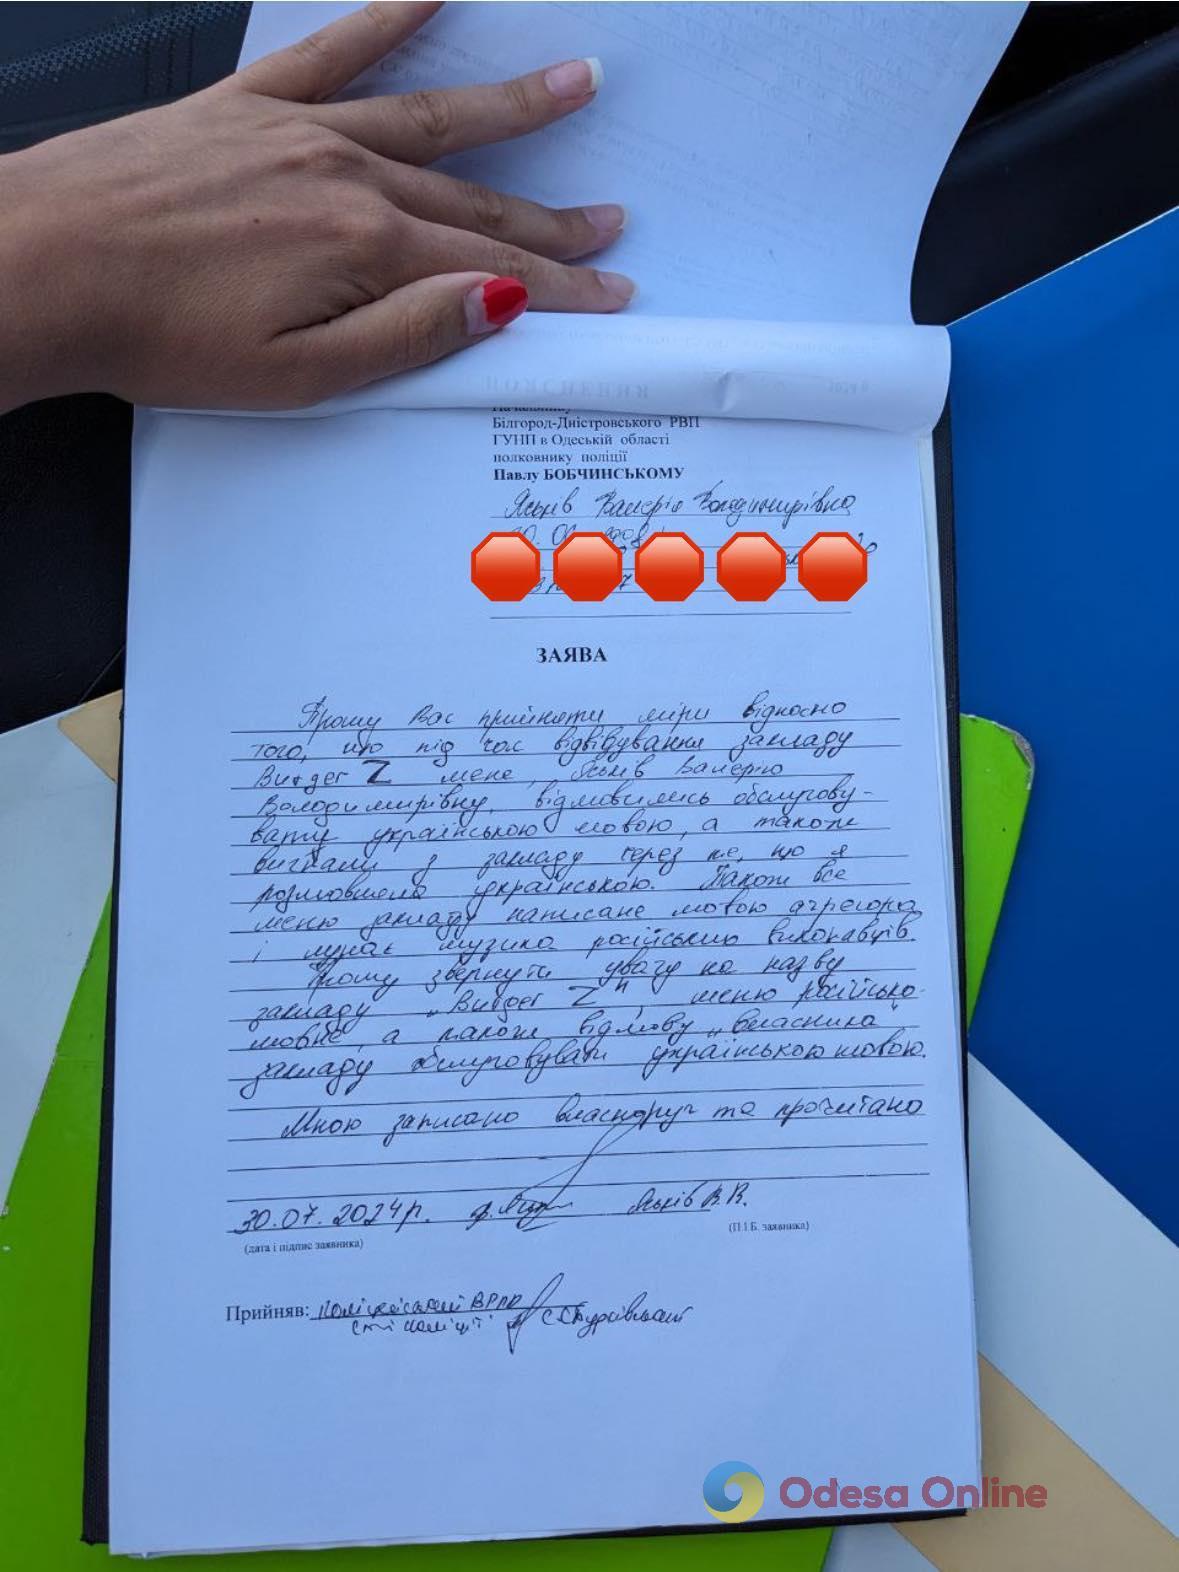 ПОЯСНЕННЯ
Білгород-Дністровського РВП
ГУНП в Одеській області
полковнику поліції
Павлу БОБЧИНСЬКОМУ
Яськів Валерія Володимирівна
ЗАЯВА
Прошу Вас прийняти міри відносно
того, що під час відвідування закладу
Burger Z мене, Яськів Валерію
Володимирівну, відмовились обслугову-
вати українською мовою, а також
вигнали з закладу через те, що я
розмовляла українською. Також все
меню закладу написане мовою агресора
і лунає музика російських виконавців.
Прошу звернути увагу на назву
закладу „Burger Z", меню російсько-
мовне, а також відмову „власника"
закладу обслуговувати українською мовою.
Мною записано власноруч та прочитано
30.07.2024р. Яськів В.В.
(дата і підпис заявника) (П.І.Б. заявника)
Прийняв: поліцейський ВРПП
Odesa Online